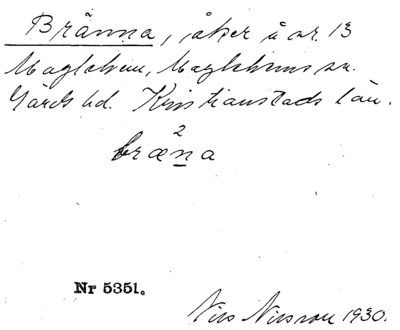 Bränna, åker å nr. 13
Maglehem, Maglehems sn.
Gärds hd. Kristianstads län.
2
bræna
Nr 5351.
Nils Nilsson 1930.